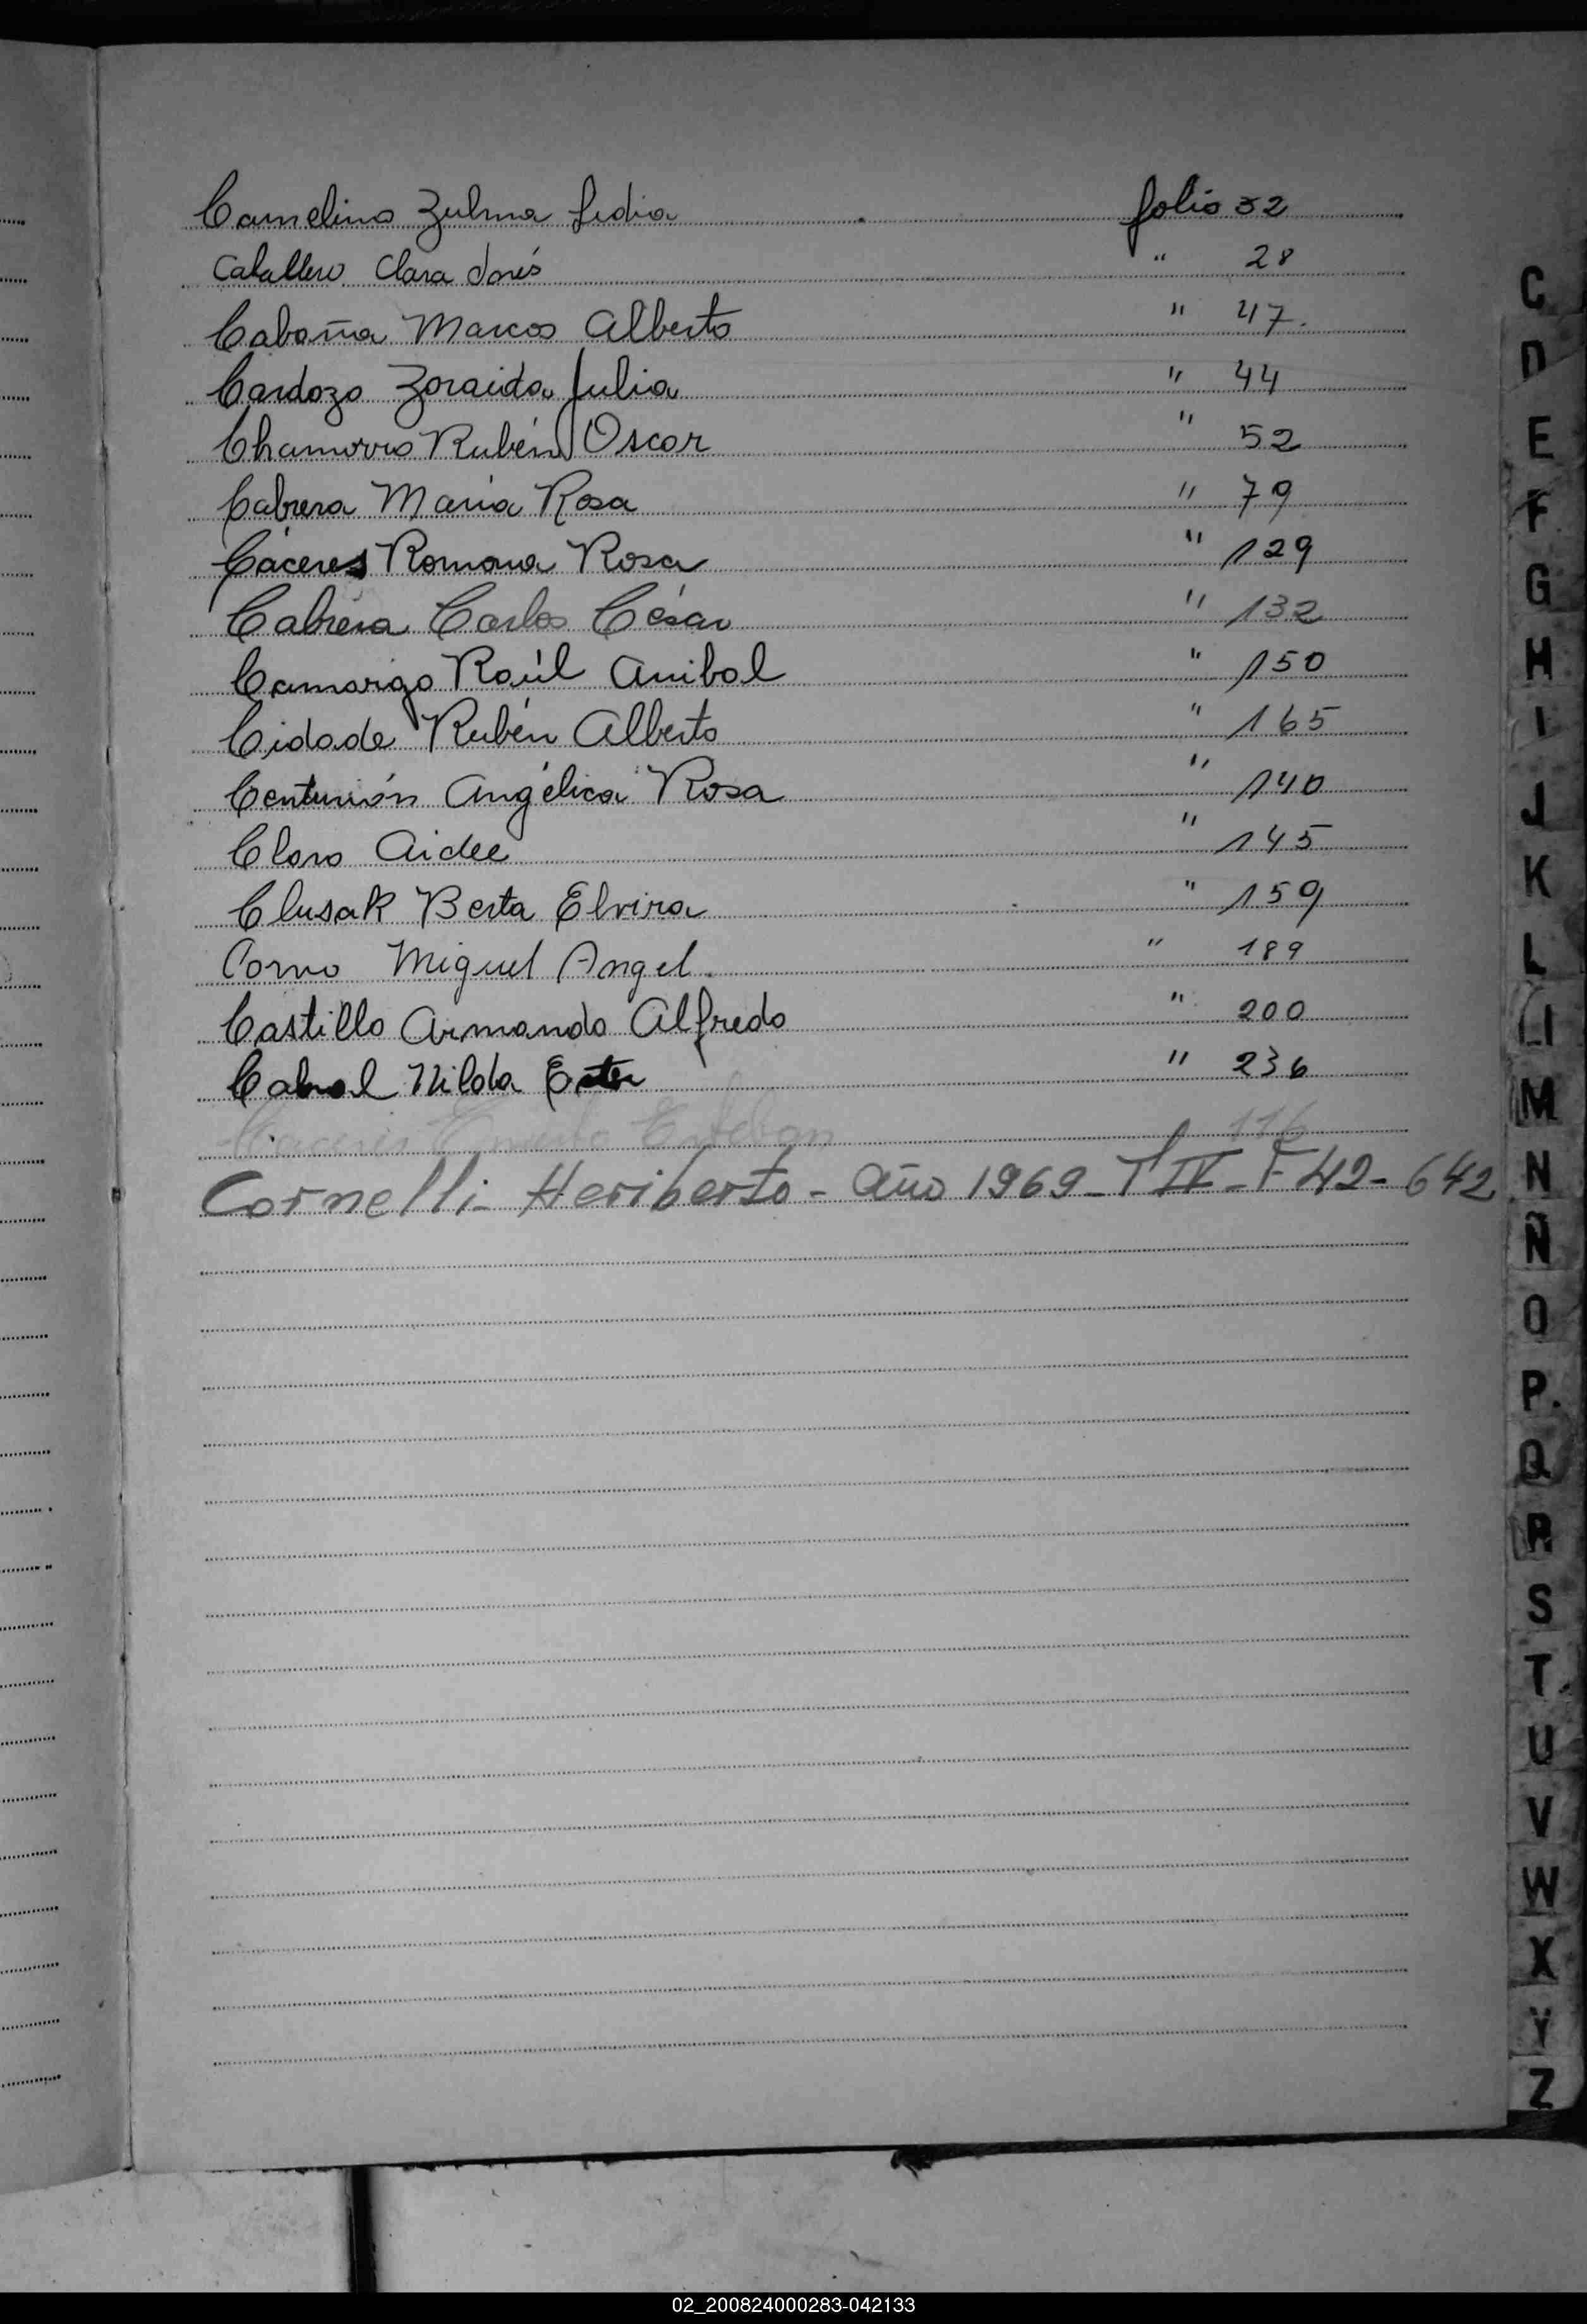 Camelino Zulma Lidia folio 32
Caballero Clara Inés " 28
Cabaña Marcos Alberto " 47.
Cardozo Zoraida Julia " 44
Chamorro Rubén Oscar " 52
Cabrera María Rosa " 79
Cáceres Romona Rosa " 129
Cabrera Carlos César " 132
Camargo Raúl Anibal " 150
Cidade Rubén Alberto " 165
Centurión Angélica Rosa " 140
Claro Aidee " 145
Clusak Berta Elvira " 159
Corvo Miguel Angel. " 189
Castillo Armando Alfredo " 200
Cabral Nilda Ester " 236
Caceres Esteban 116
Cornelli- Heriberto - año 1969 - T IV - F 42 - 642
C
D
E
F
G
H
I
J
K
L
Ll
M
N
Ñ
O
P
Q
R
S
T
U
V
W
X
Y
Z
02_200824000283-042133